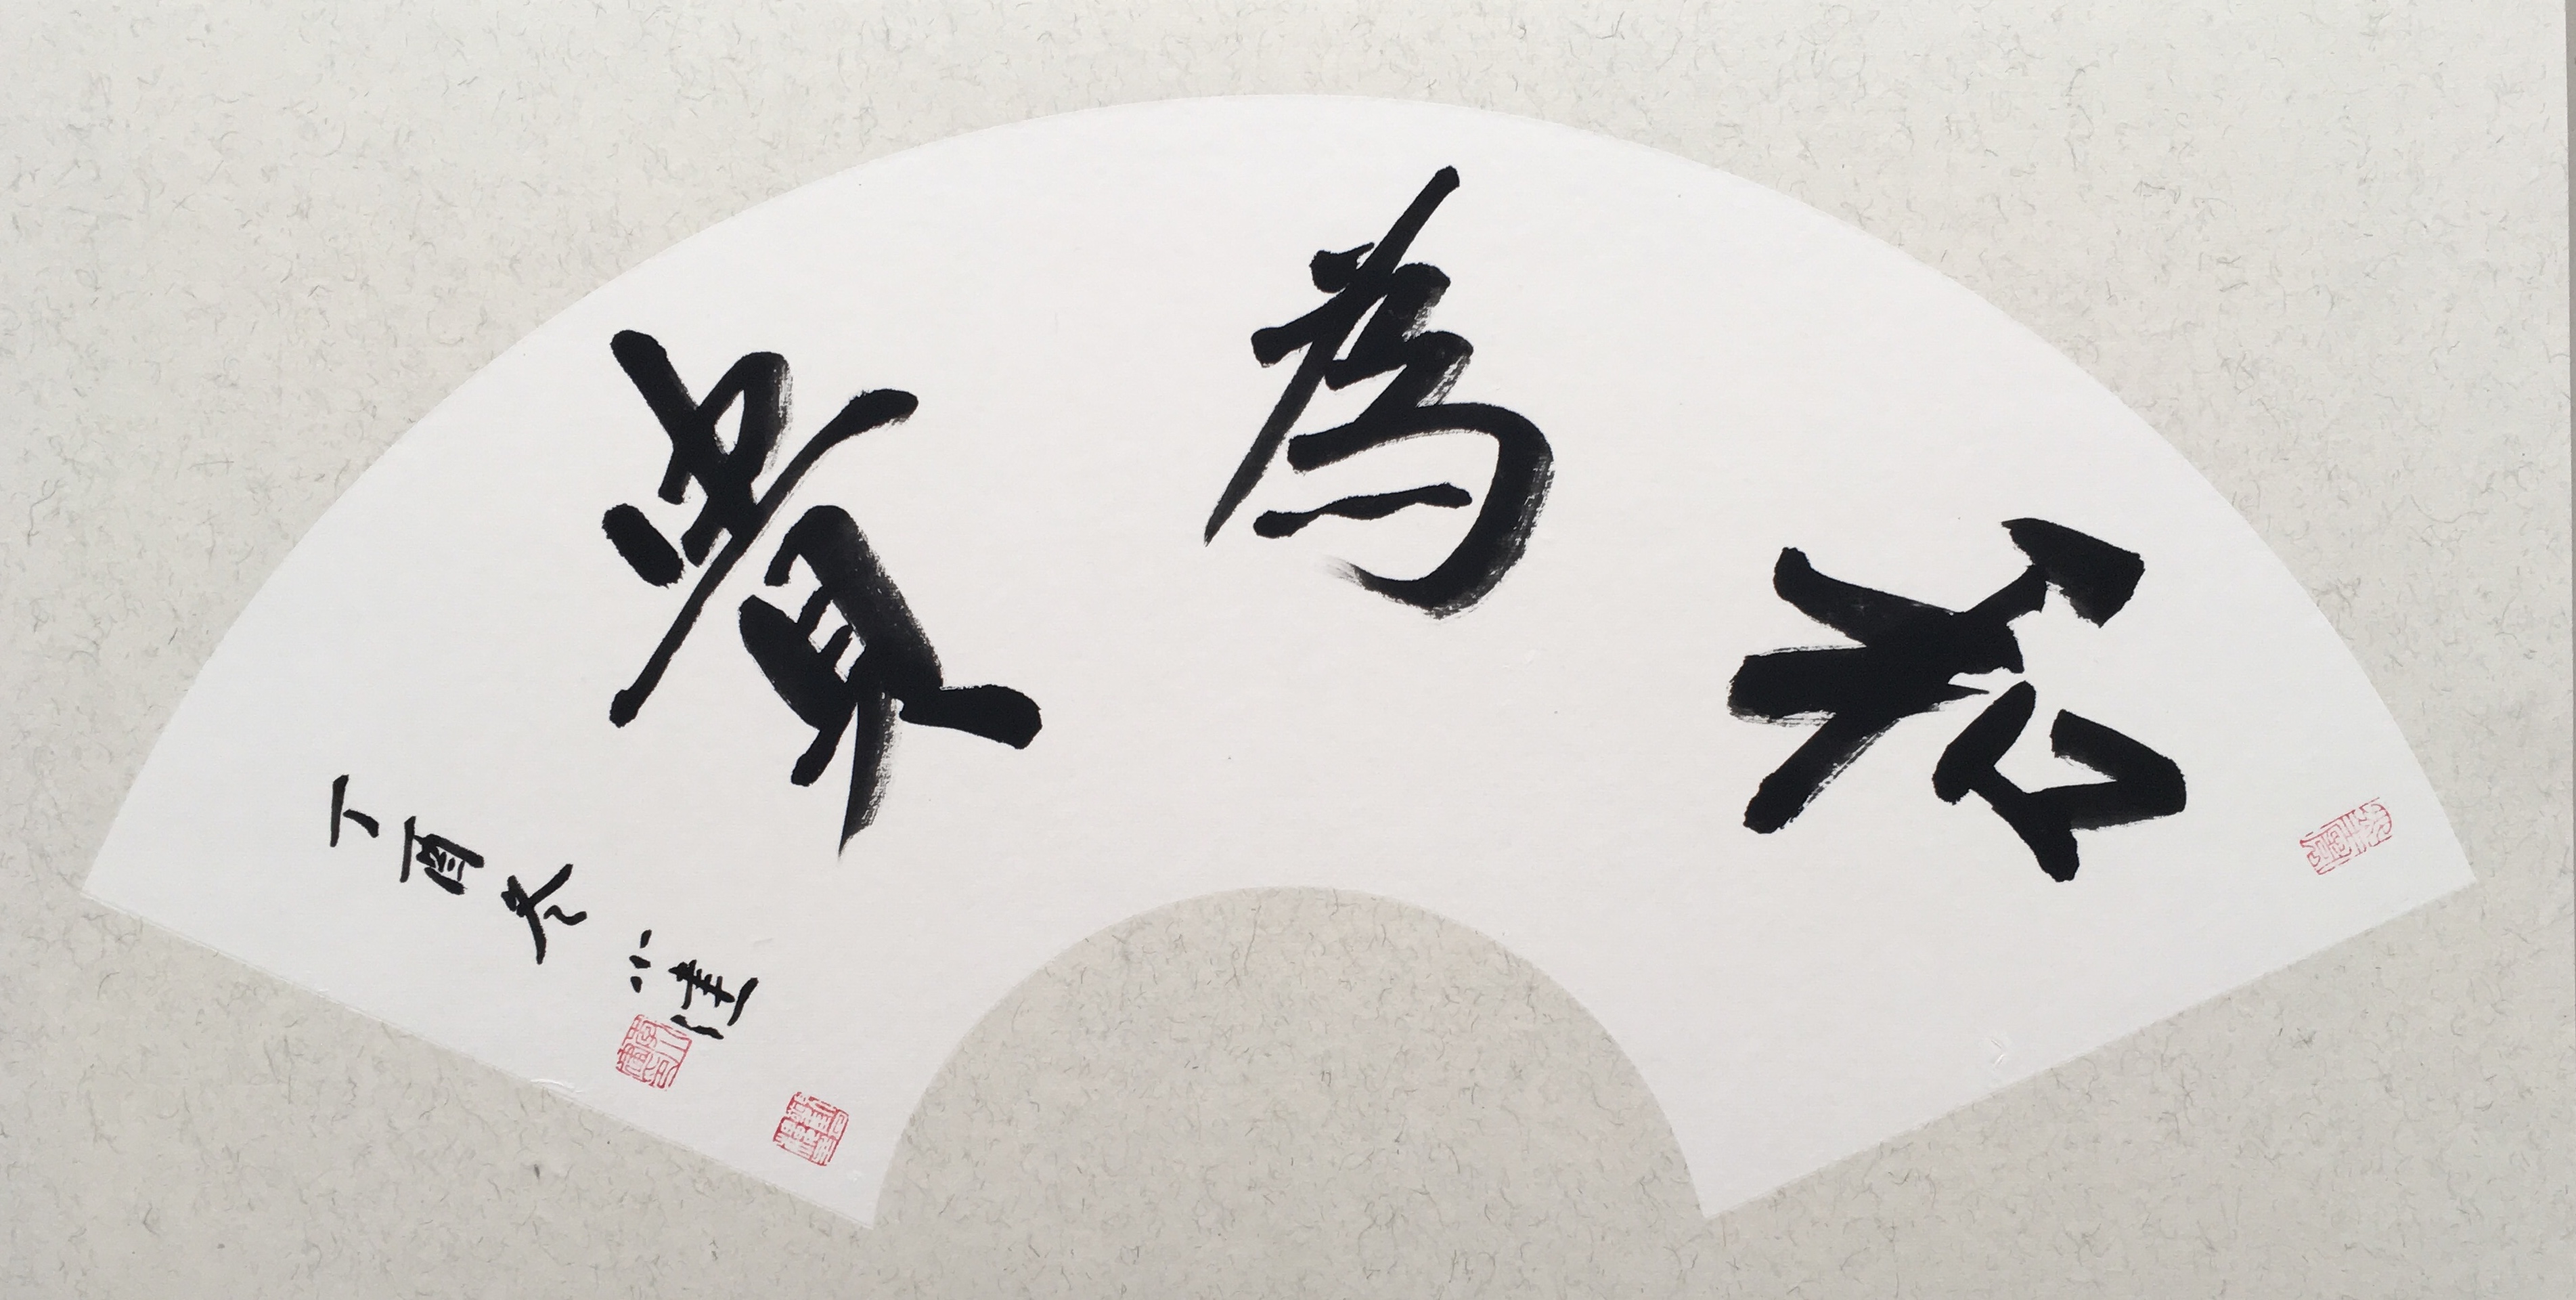 和為貴
丁酉冬小健